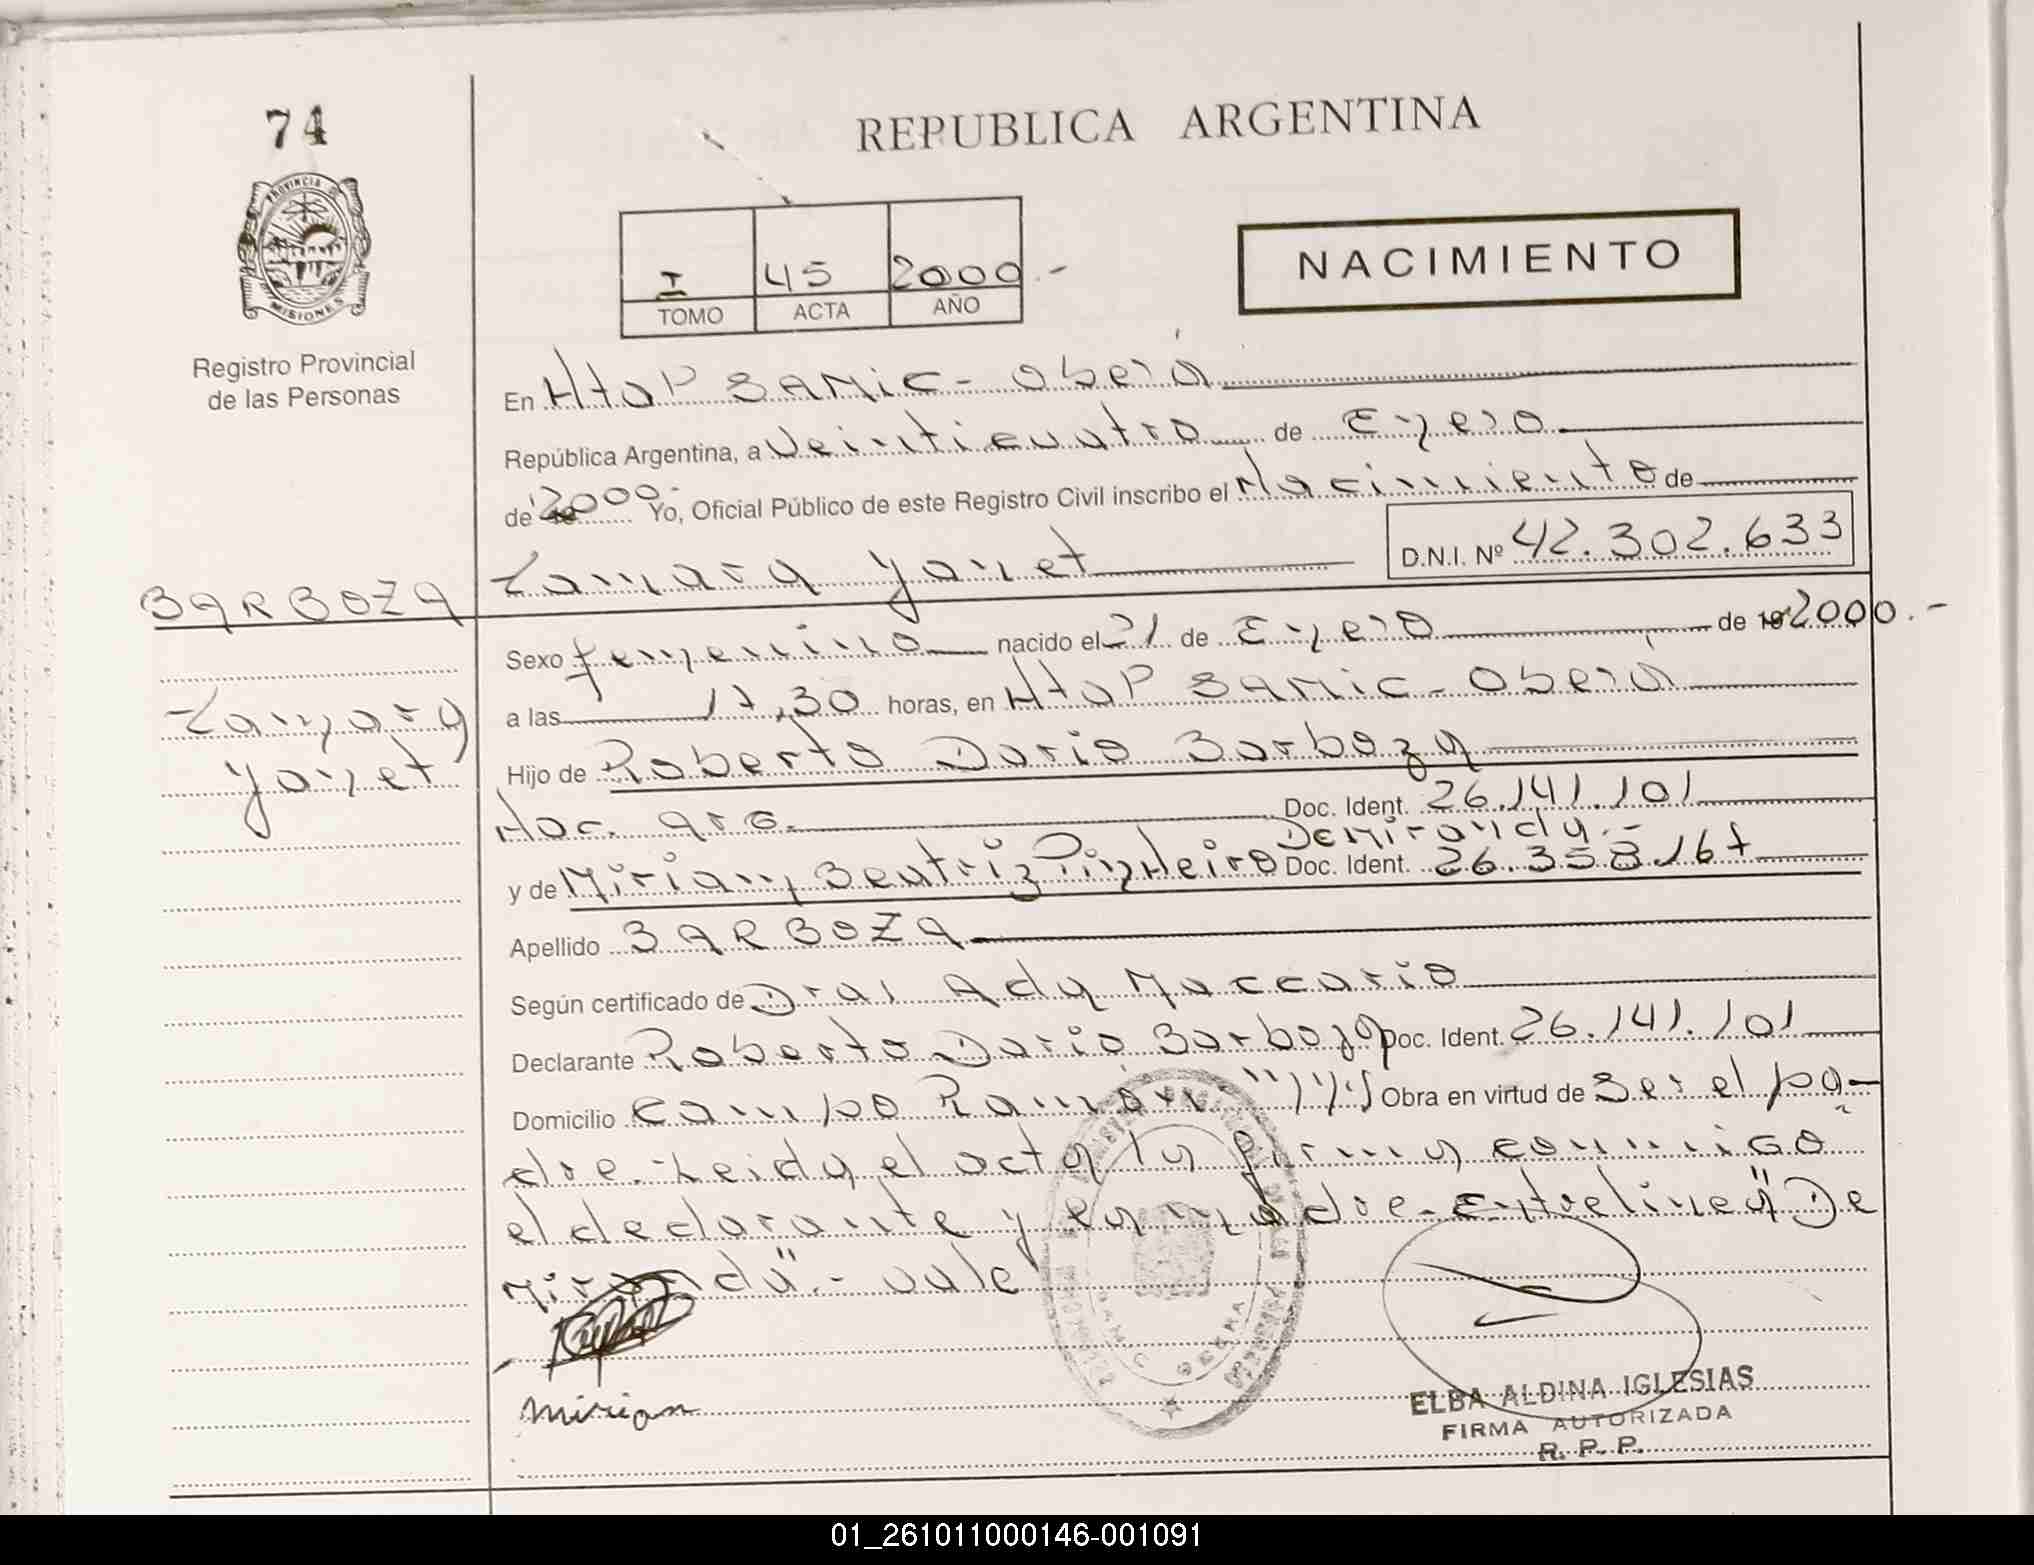 74
REPUBLICA ARGENTINA
PROVINCIA DE
MISIONES
Registro Provincial
de las Personas
I 45 2000.-
TOMO ACTA AÑO
NACIMIENTO
En HtaP SAMIC - Oberá
República Argentina, a Veinticuatro de Enero
de 2000.- Yo, Oficial Público de este Registro Civil inscribo el Nacimiento de
Tamara Yanet D.N.I. Nº 42.302.633
BARBOZA
Tamara
Yanet
Sexo femenino nacido el 21 de Enero de 19 2000.-
a las 17,30 horas, en HtaP SAMIC - Oberá
Hijo de Roberto Dario Barboza
Nac. arg. Doc. Ident. 26.141.101
De Miranda.-
y de Miriam Beatriz Pinheiro Doc. Ident. 26.358.167
Apellido BARBOZA
Según certificado de Dra. Ady Maccario
Declarante Roberto Dario Barboza Doc. Ident. 26.141.101
Domicilio Campo Ramón Obra en virtud de Ser el pa-
dre.- Leida el acta la firma conmigo
el declarante y la madre - Entrelinea "De
Miranda".- vale
Mirian
SAMIC OBERA
ELBA ALDINA IGLESIAS
FIRMA AUTORIZADA
R. P. P.
01_261011000146-001091